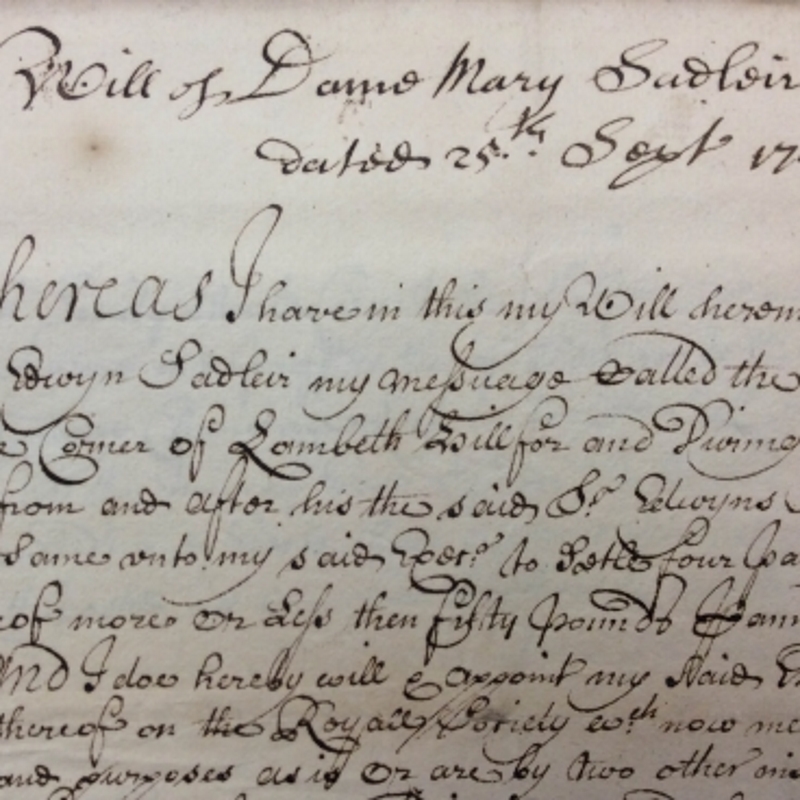 Will of Dame Mary Sadleir
dated 25.th Sept 17
hereas I have in this my Will herein
Edwyn Sadleir my messuage called the
Corner of Lambeth Hill for and During
from and after his the said Sr Edwyns
same vnto my said Execrs to Setle four pa
of more or Less then fifty pounds p ann
And I doe hereby will & appoint my said E
thereof on the Royall Society wch now me
and purposes as is or are by two other ins